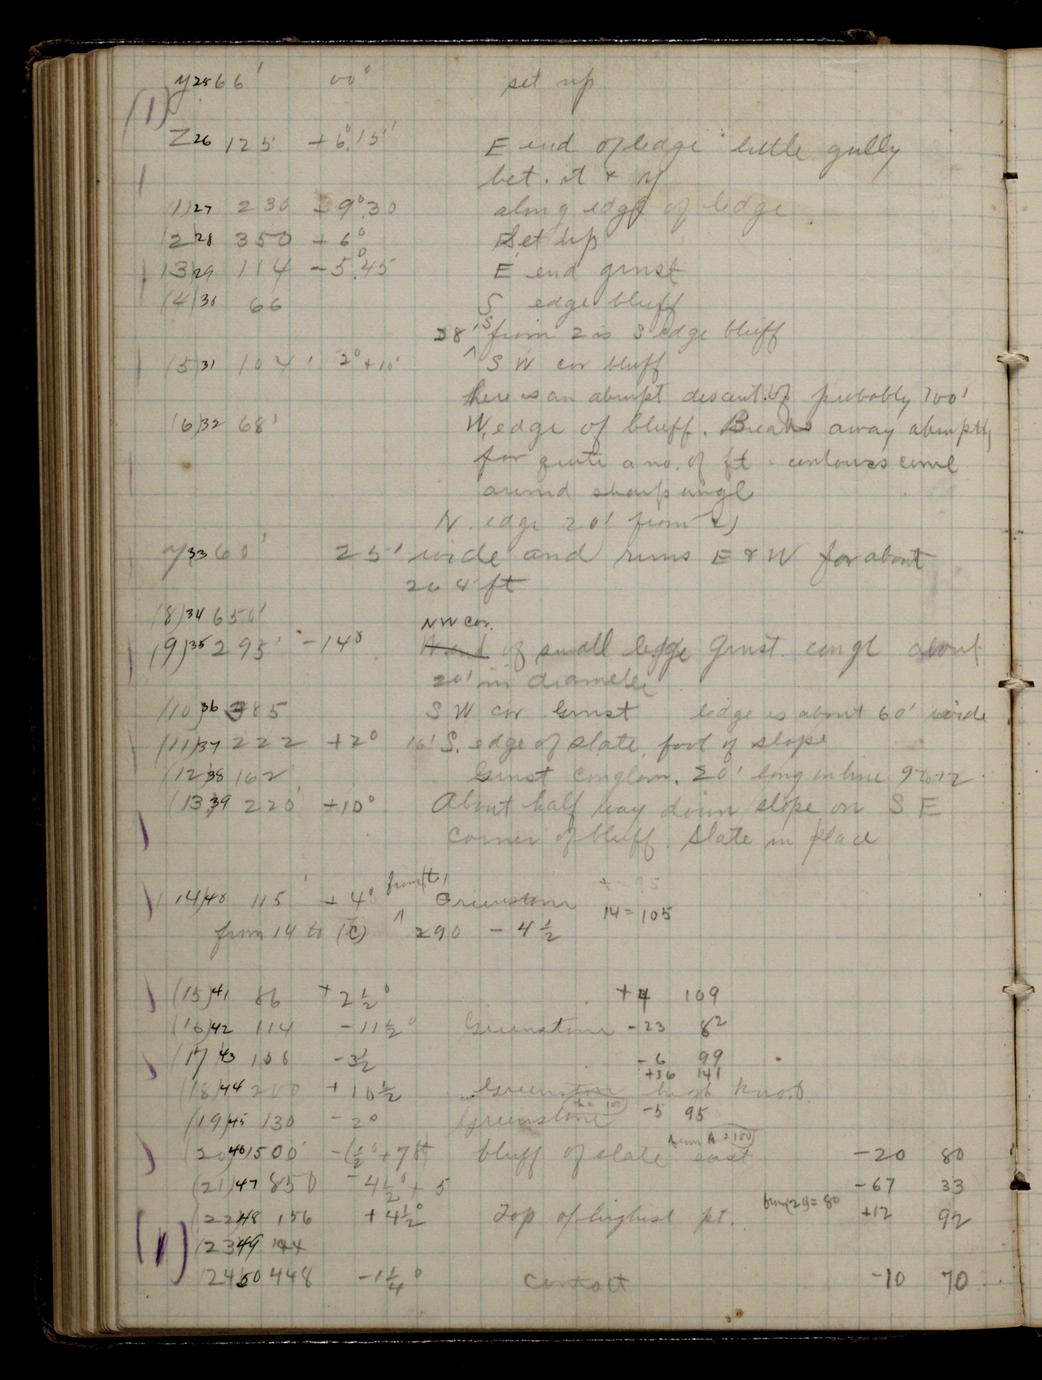 y 25 66' 00° set up
(1)
Z 26 125 +6°15' E end of ledge little gully
bet. it + y
(1) 27 230 +9°30 along edge of ledge
(2 28 350 +6° Set up
(3) 29 114 -5°45 E end grnst
(4) 30 66 S edge bluff
28' S from 2 is S edge bluff
(5 31 104' 2°+10' S W cor bluff
there is an abrupt descent of probably 700'
(6) 32 68' W. edge of bluff. Breaks away abruptly
for quite a no. of ft contours come
around sharp angl
N. edge 20' from
y 33 60' 25' wide and runs E & W for about
264 ft
(8) 34 650' NW cor.
(9) 35 295' -14° of small ledge Grnst congl about
20' in diameter
(10) 36 385 S W cor Grnst ledge is about 60' wide
(11) 37 222 +2° 16' S. edge of slate foot of slope
(12 38 162 Grnst conglom. 20' long in line 9 to 12
(13 39 220' +10° About half way down slope on S E
corner of bluff. Slate in place
14) 40 115' +4° Greenstone 14=105
from 14 to (C) 290 - 4½
(15) 41 86 +2½° +4 109
(16) 42 114 -11½° Greenstone -23 82
(17) 43 108 -3½ -6 99
+36 141
(18) 44 200 +10½ Greenstone high knob
(19) 45 130 -2° Greenstone -5 95
(20 46 1500' -(½°+78) bluff of slate east -20 80
(21) 47 850 -4½°+5 -67 33
(22 48 156 +4½° Top of highest pt. from (21)=80 +12 92
(23 49 144
(24 50 448 -1¼° Contact -10 70